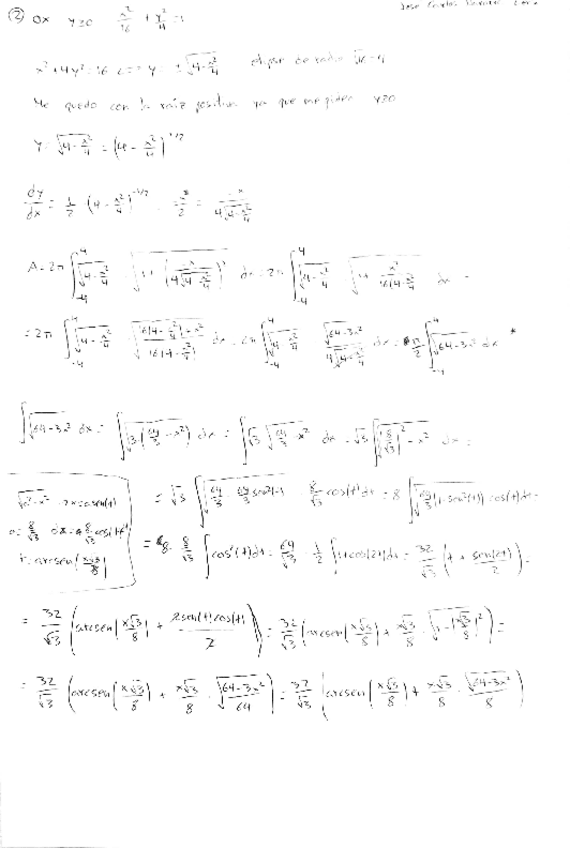 ② OX y≥0 x²/16 + y²/4 = 1
x² + 4y² = 16 <=> y = ±√(4 - x²/4) elipse de radio
Me quedo con la raíz positiva ya que me piden y≥0
y = √(4 - x²/4) = (4 - x²/4)^(1/2)
dy/dx = 1/2 (4 - x²/4)^(-1/2) · -x/2 = -x / 4√(4 - x²/4)
A = 2π ∫_{-4}^{4} √(4 - x²/4) √(1 + (-x / 4√(4 - x²/4))²) dx = 2π ∫_{-4}^{4} √(4 - x²/4) √(1 + x² / 16(4 - x²/4)) dx =
= 2π ∫_{-4}^{4} √(4 - x²/4) √((16(4 - x²/4) + x²) / 16(4 - x²/4)) dx = 2π ∫_{-4}^{4} √(4 - x²/4) √(64-3x²) / 4√(4 - x²/4) dx = π/2 ∫_{-4}^{4} √(64-3x²) dx *
∫√(64-3x²) dx = ∫√(3(64/3 - x²)) dx = ∫√3 √(64/3 - x²) dx = √3 ∫√((8/√3)² - x²) dx =
√(a²-x²) x = a sen(t)
= √3 ∫√(64/3 - 64/3 sen²(t)) · 8/√3 cos(t) dt = 8 ∫√(64/3 (1-sen²(t))) cos(t) dt =
a = 8/√3 dx = 8/√3 cos(t) dt
t = arcsen(x√3/8)
= 8 · 8/√3 ∫cos²(t) dt = 64/√3 · 1/2 ∫1+cos(2t) dt = 32/√3 (t + sen(2t)/2) =
= 32/√3 (arcsen(x√3/8) + 2sen(t)cos(t)/2) = 32/√3 (arcsen(x√3/8) + x√3/8 · √(1-(x√3/8)²)) =
= 32/√3 (arcsen(x√3/8) + x√3/8 · √((64-3x²)/64)) = 32/√3 (arcsen(x√3/8) + x√3/8 · √(64-3x²)/8)